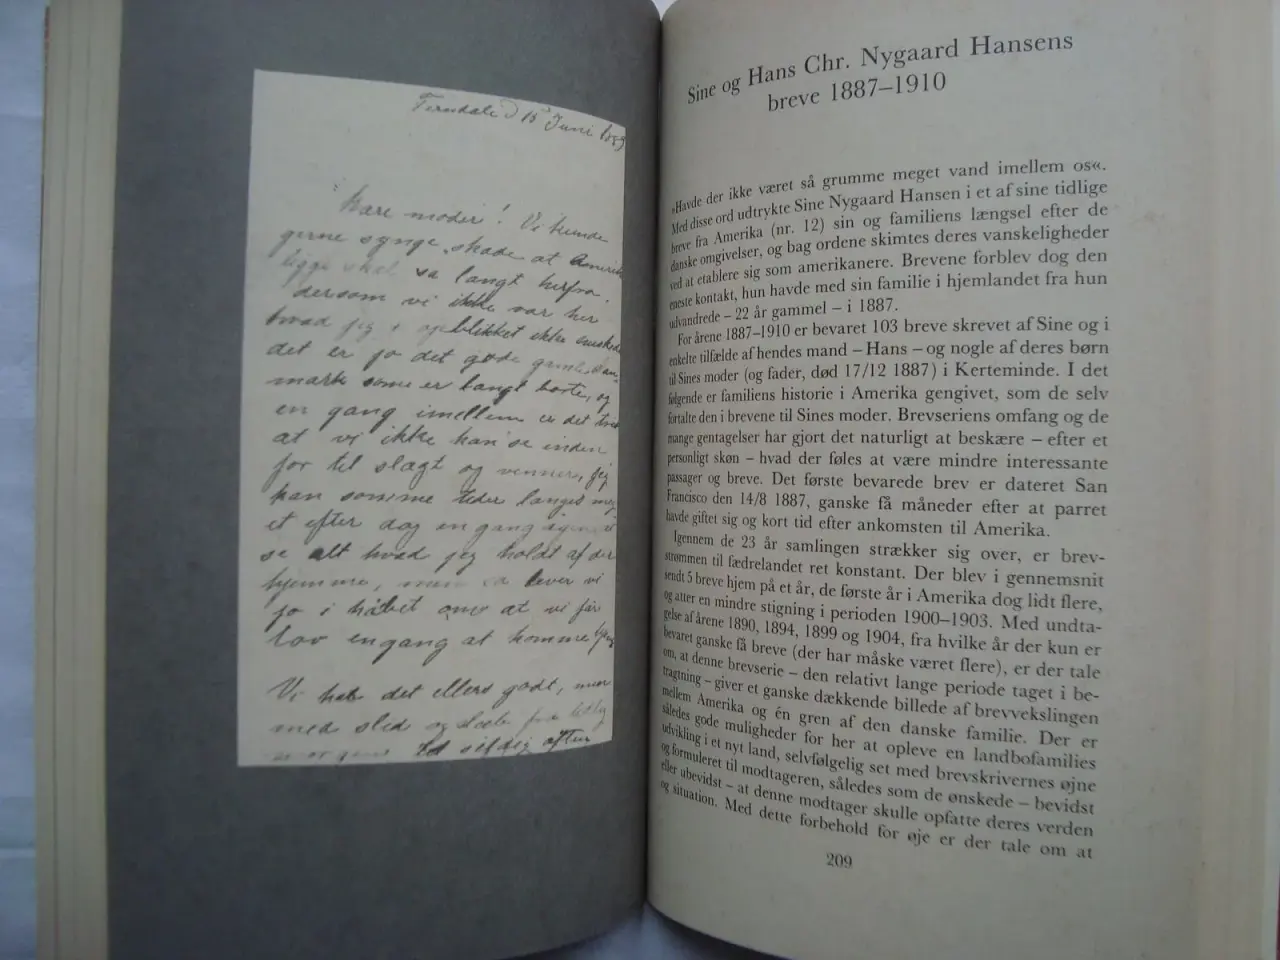 Ferndale d 15 Juni 1889
Kære moder! Vi kunde
gerne synge, skade at Amerika
ligge skal så langt herfra.
dersom vi ikke var her
hvad jeg i øieblikket ikke ønsker
det er jo det gode gamle Dan-
mark some er langt borte, og
en gang imellem er det trist
at vi ikke kan se inden
for til slægt og venner, jeg
kan somme tider langes mej
et efter dog en gang igen at
se alt hvad jeg holdt af der
hjemme, men så lever vi
jo i håbet om at vi får
lov engang at komme hjem
Vi har det ellers godt, men
med slid og slæb fra tidlig
morgen til sildig aften
Sine og Hans Chr. Nygaard Hansens
breve 1887–1910
»Havde der ikke været så grumme meget vand imellem os«.
Med disse ord udtrykte Sine Nygaard Hansen i et af sine tidlige
breve fra Amerika (nr. 12) sin og familiens længsel efter de
danske omgivelser, og bag ordene skimtes deres vanskeligheder
ved at etablere sig som amerikanere. Brevene forblev dog den
eneste kontakt, hun havde med sin familie i hjemlandet fra hun
udvandrede – 22 år gammel – i 1887.
For årene 1887-1910 er bevaret 103 breve skrevet af Sine og i
enkelte tilfælde af hendes mand – Hans – og nogle af deres børn
til Sines moder (og fader, død 17/12 1887) i Kerteminde. I det
følgende er familiens historie i Amerika gengivet, som de selv
fortalte den i brevene til Sines moder. Brevseriens omfang og de
mange gentagelser har gjort det naturligt at beskære – efter et
personligt skøn – hvad der føles at være mindre interessante
passager og breve. Det første bevarede brev er dateret San
Francisco den 14/8 1887, ganske få måneder efter at parret
havde giftet sig og kort tid efter ankomsten til Amerika.
Igennem de 23 år samlingen strækker sig over, er brev-
strømmen til fædrelandet ret konstant. Der blev i gennemsnit
sendt 5 breve hjem på et år, de første år i Amerika dog lidt flere,
og atter en mindre stigning i perioden 1900–1903. Med undta-
gelse af årene 1890, 1894, 1899 og 1904, fra hvilke år der kun er
bevaret ganske få breve (der har måske været flere), er der tale
om, at denne brevserie – den relativt lange periode taget i be-
tragtning – giver et ganske dækkende billede af brevvekslingen
mellem Amerika og én gren af den danske familie. Der er
således gode muligheder for her at opleve en landbofamilies
udvikling i et nyt land, selvfølgelig set med brevskrivernes øjne
og formuleret til modtageren, således som de ønskede – bevidst
eller ubevidst – at denne modtager skulle opfatte deres verden
og situation. Med dette forbehold for øje er der tale om at
209